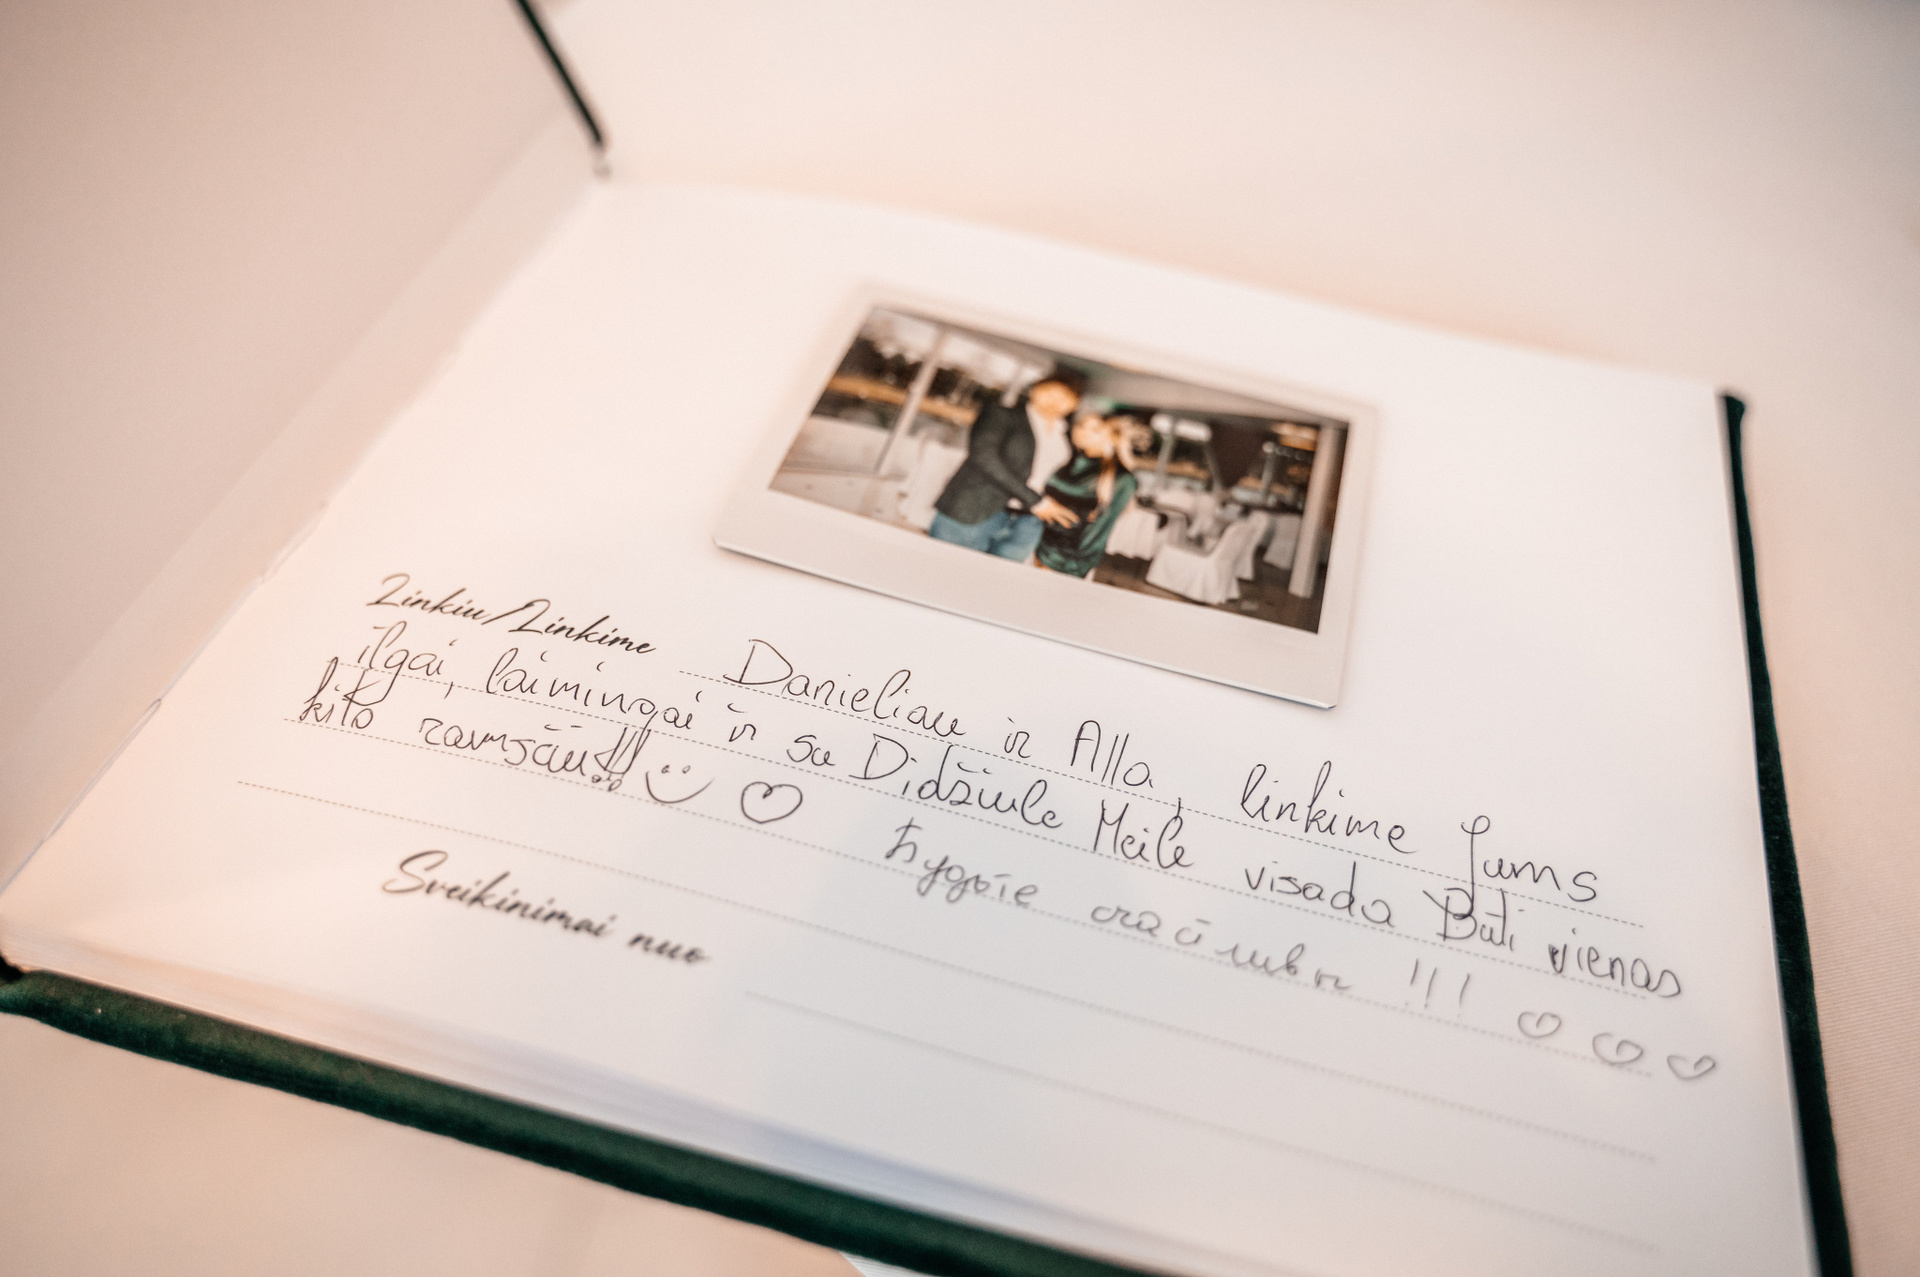 Linkiu/Linkime Danieliau ir Alla, linkime Jums
ilgai, laimingai ir su Didžiule Meile visada Būti vienas
kito ramsčiu!!! Будьте счастливы !!!
Sveikinimai nuo